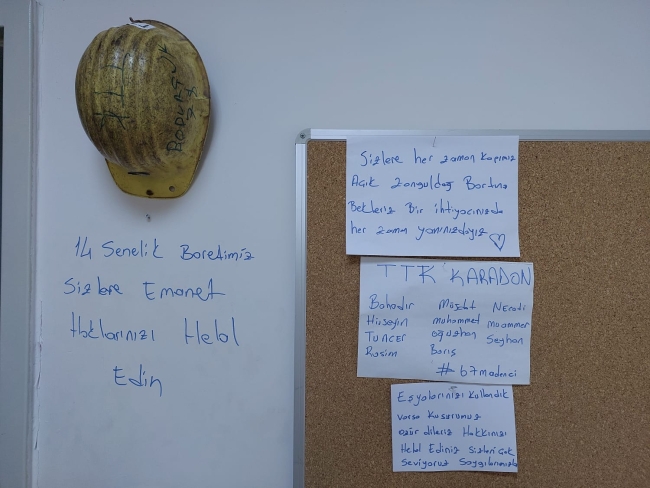 BODURTUK
14 Senelik Baretimiz
Sizlere Emanet
Haklarınızı Helal
Edin
Sizlere her zaman kapımız
Açık Zonguldağ Bartına
Bekleriz Bir ihtiyacınızda
her zaman yanınızdayız
TTK KARADON
Bahadır Müşelt Necati
Hüseyin muhammed muammer
TUNCER oğuzhan Seyhan
Rasim Barış
#67madenci
Eşyalarınızı Kullandık
varsa Kusurumuz
özür dileriz Hakkınızı
Helal Ediniz Sizleri Çok
Seviyoruz Saygılarımızla